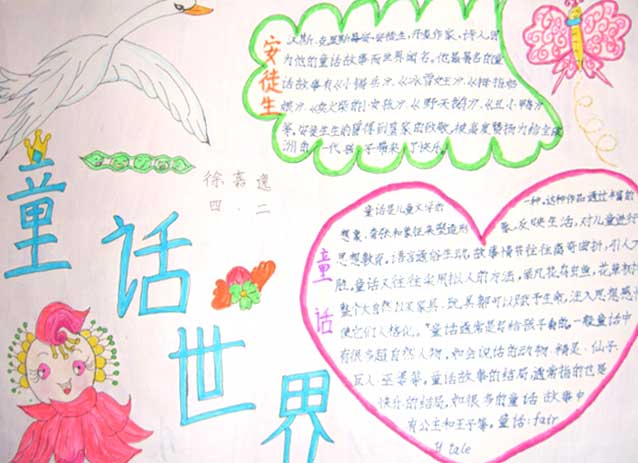 童话世界
徐嘉逸
四.二
安徒生
汉斯.克里斯蒂安.安徒生,丹麦作家、诗人因
为他的童话故事而世界闻名。他最著名的童
话故事有《小锡兵》、《冰雪女王》、《拇指姑
娘》、《卖火柴的小女孩》、《野天鹅》、《丑小鸭》
等。安徒生生前获得到皇家的致敬,被高度赞扬为给全欧
洲的一代孩子带来了快乐。
童话
童话是儿童文学的一种,这种作品通过丰富的
想象、夸张和象征来塑造形象,反映生活,对儿童进行
思想教育,语言通俗生动,故事情节往往离奇曲折,引人入
胜,童话又往往采用拟人的方法,举凡花鸟虫鱼,花草树木
整个大自然以及家具、玩具都可以赋予生命,注入思想感
使它们人格化。"童话通常是写给孩子看的,一般童话中
有很多超自然人物,如会说话的动物、精灵、仙子、
巨人、巫婆等,童话故事的结局,通常指的也是
快乐的结局,如很多的童话故事中
有公主和王子等。童话:fair
y tale